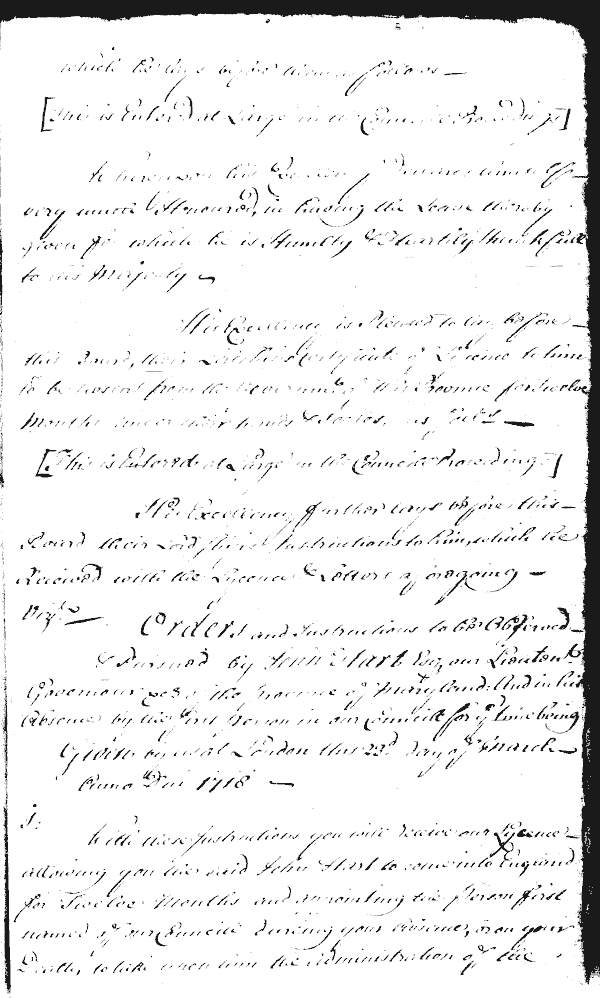 which he lays before them as follows —
[This is Entered at Large in the Councill Proceedings]
Whereupon his Excellency Deems himself
very much Honoured, in having the Leave thereby
given for which he is Humbly & Heartily thankfull
to his Majesty
His Excellency is Pleased to lay before
this Board, their Lordships Certificate of Lycence to him
to be absent from the Government of this Province for Twelve
Months under their hands & Seales, as foll:s —
[This is Entered at Large in the Councill Proceedings]
His Excellency further lays before this
Board their Lordships Instructions to him, which he
Reciev'd with the Lycence & Letters aforegoing —
Vizt. —
Orders and Instructions to be Observed
& Pursued by John Hart Esq. our Lieutent.
Governour &c. of the Province of Maryland. And in his
Absence by the first Person in our Councill for ye. time being
Given by us at London this 23d. day of March
Anno Dni 1718 —
1:
With these Instructions you will receive our Lycence
allowing you the said John Hart to come into England
for Twelve Months and appointing the Person first
named of our Councill dureing your absence, or on your
Death, to take upon him the Administration of the